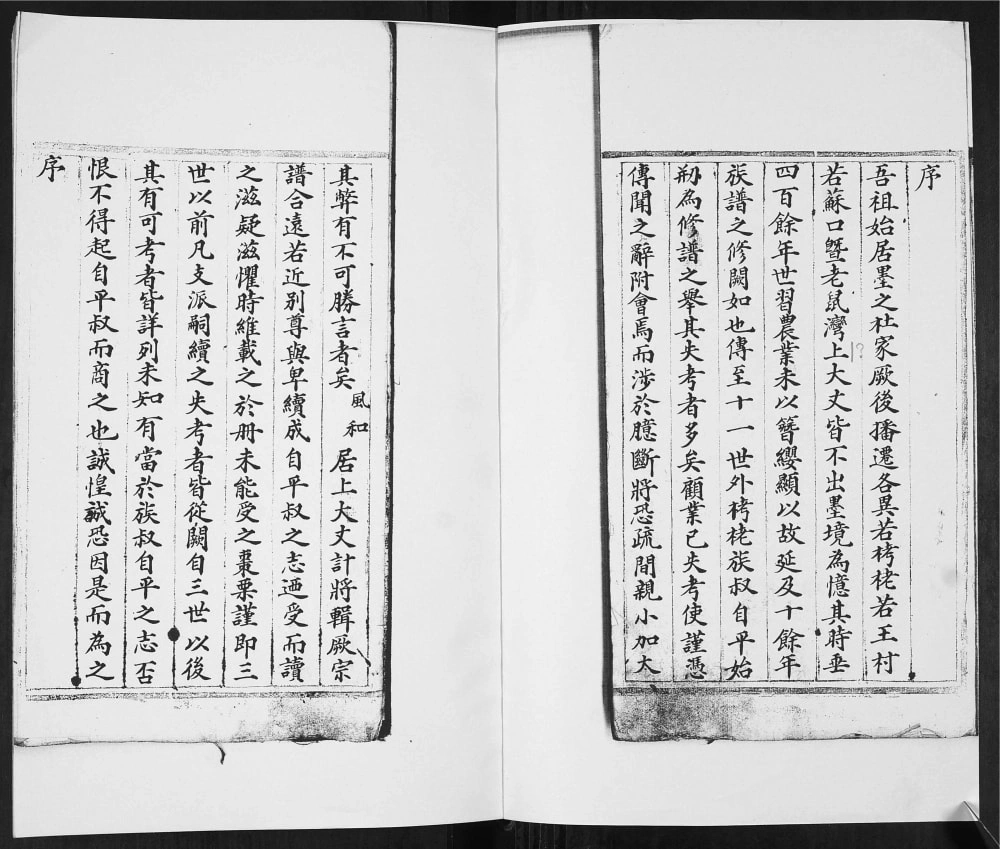 序
吾祖始居墨之杜家厥後播遷各異若栲栳若王村
若蘇口暨老鼠灣上大丈皆不出墨境為憶其時垂
四百餘年世習農業未以簪纓顯以故延及十餘年
族譜之修闕如也傳至十一世外栲栳族叔自平始
刱為修譜之舉其失考者多矣顧業已失考使謹憑
傳聞之辭附會焉而涉於臆斷將恐疏間親小加大
其弊有不可勝言者矣風和居上大丈計將輯厥宗
譜合遠若近別尊與卑續成自平叔之志迺受而讀
之滋疑滋懼時維載之於冊未能受之棗栗謹即三
世以前凡支派嗣續之失考者皆從闕自三世以後
其有可考者皆詳列未知有當於族叔自平之志否
恨不得起自平叔而商之也誠惶誠恐因是而為之
序